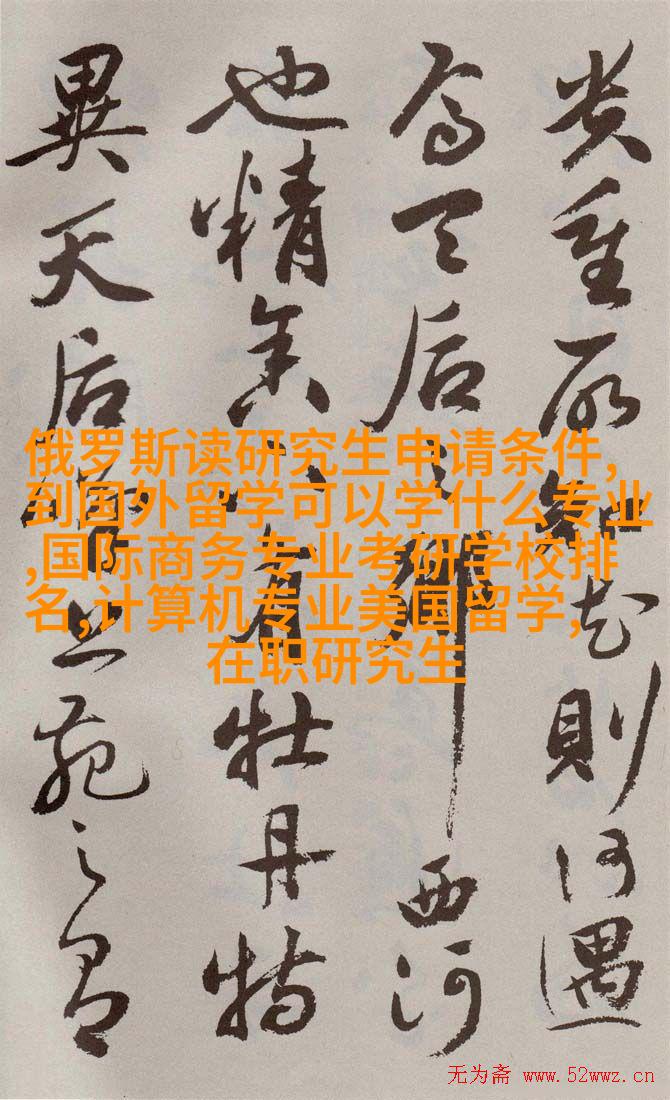 貴重所知花則何遇
焉天后之鄉西河
也精舍下有牡丹特
異天后嘆上苑之有
俄罗斯读研究生申请条件,
到国外留学可以学什么专业
,国际商务专业考研学校排
名,计算机专业美国留学,
在职研究生
无为斋 www.52wwz.cn